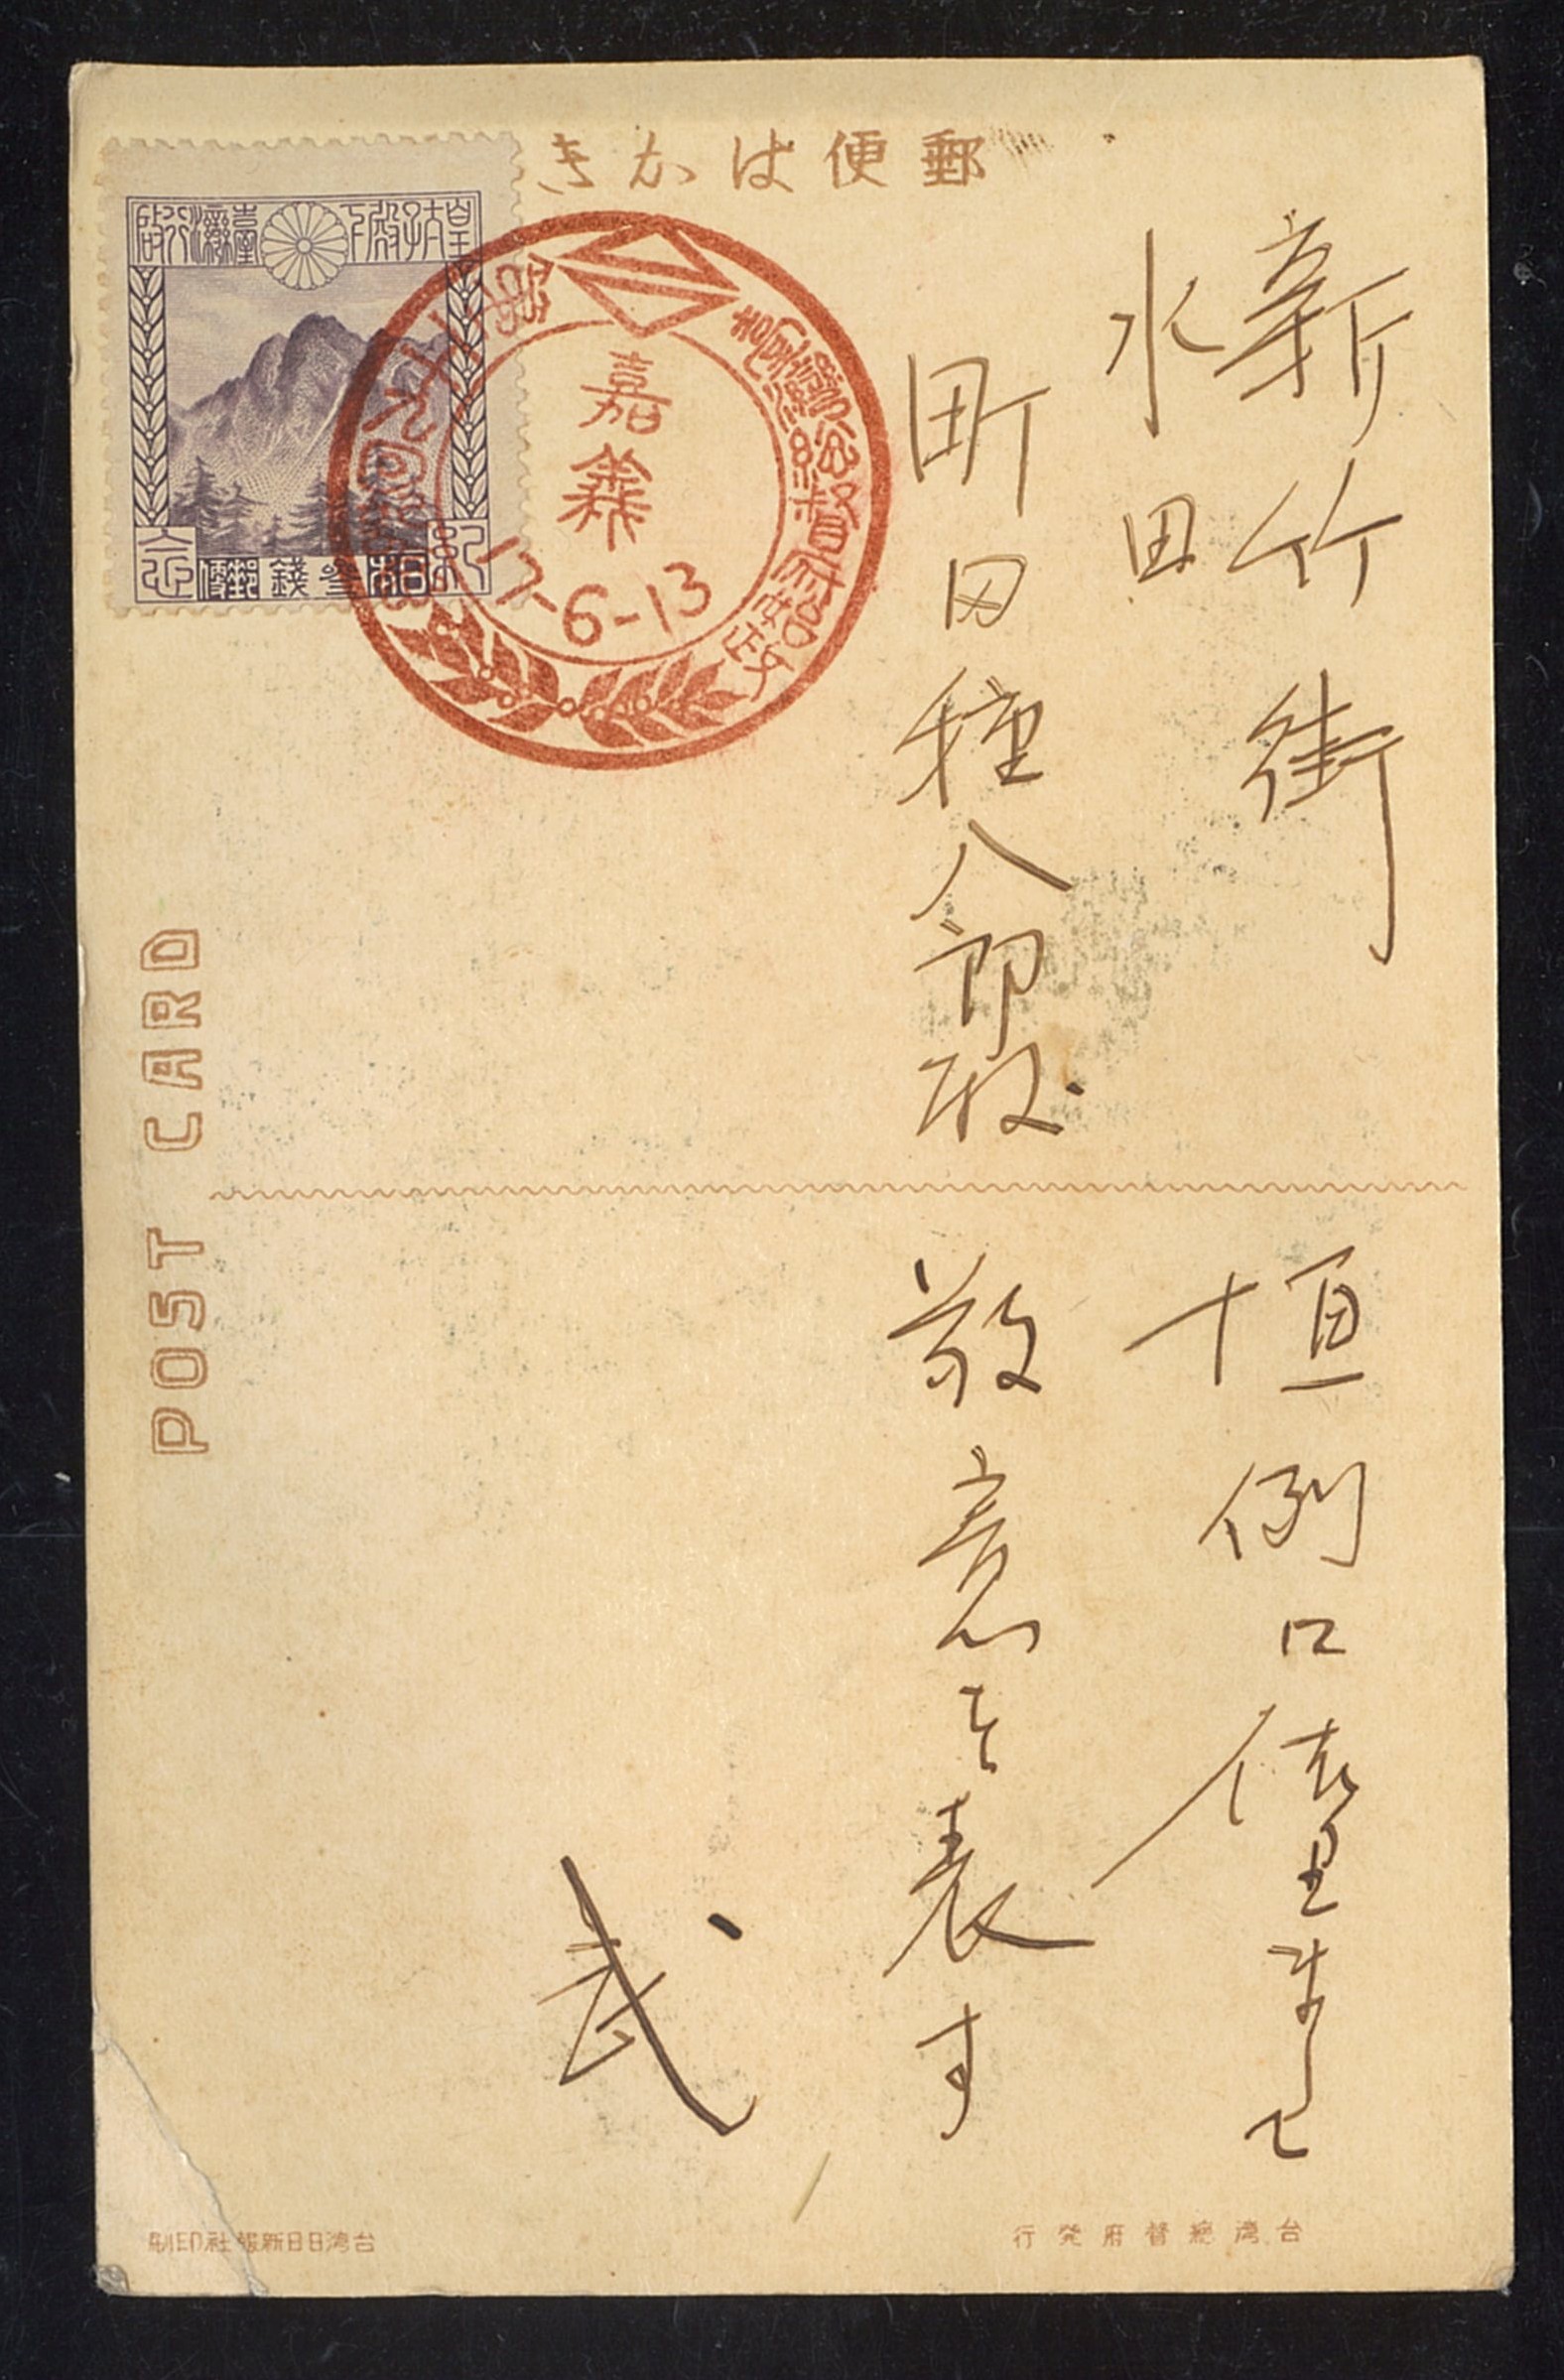 郵便はかき
皇太子殿下臺灣行啓
紀念
參錢
郵便
臺灣總督府始政
第二十九回紀念
嘉義
17-6-13
新竹街
水田
町田種八郎殿
POST CARD
恒例に依りまして
敬意を表す
武
台湾總督府発行
台湾日日新報社印刷